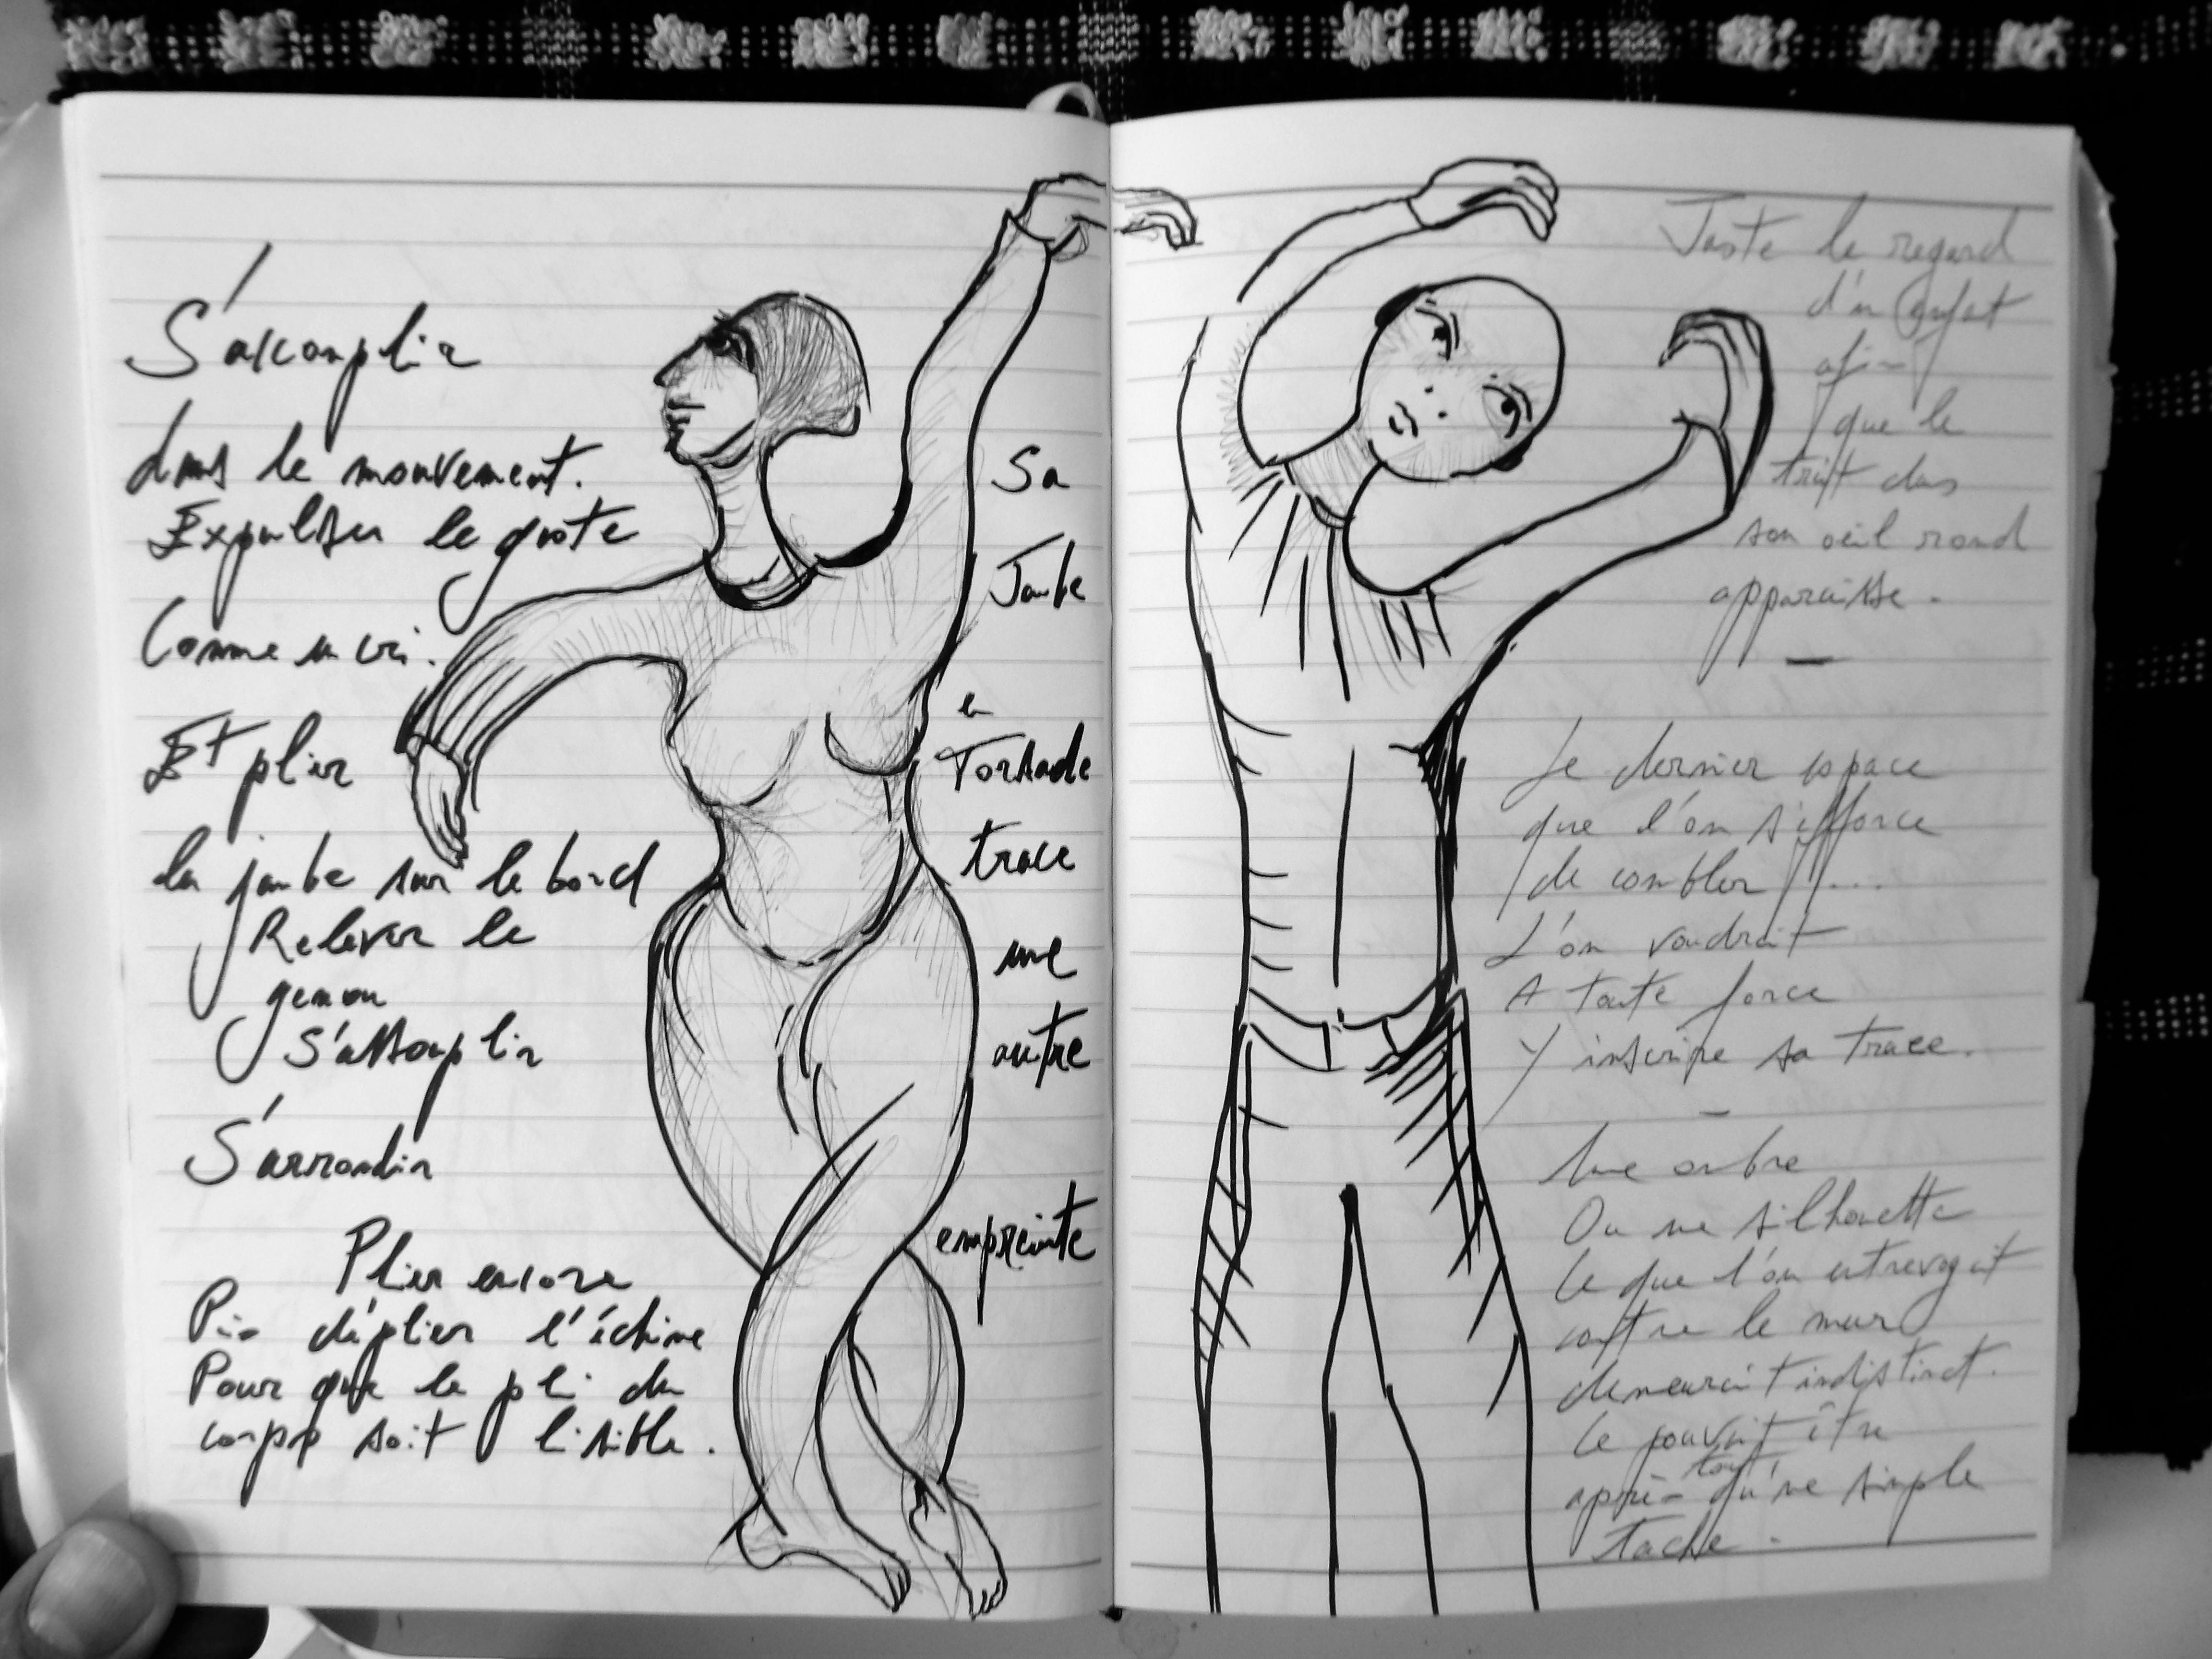 S'accomplir
dans le mouvement.
Expulser le geste
Comme un cri.
Et plier
la jambe sur le bord
Relever le
genou
S'assouplir
S'arrondir
Plier encore
Puis déplier l'échine
Pour que le pli du
corps soit lisible.
Sa
Jambe
en
Torsade
trace
une
autre
empreinte
Juste le regard
d'un Enfant
afin
que le
trait dans
son oeil rond
apparaisse.
—
Le dernier espace
que l'on s'efforce
de combler ...
L'on voudrait
A toute force
Y inscrire sa trace.
—
Une ombre
Ou une silhouette
Ce que l'on entrevoyait
contre le mur
demeurait indistinct.
Ce pouvait être
après tout qu'une simple
tache.